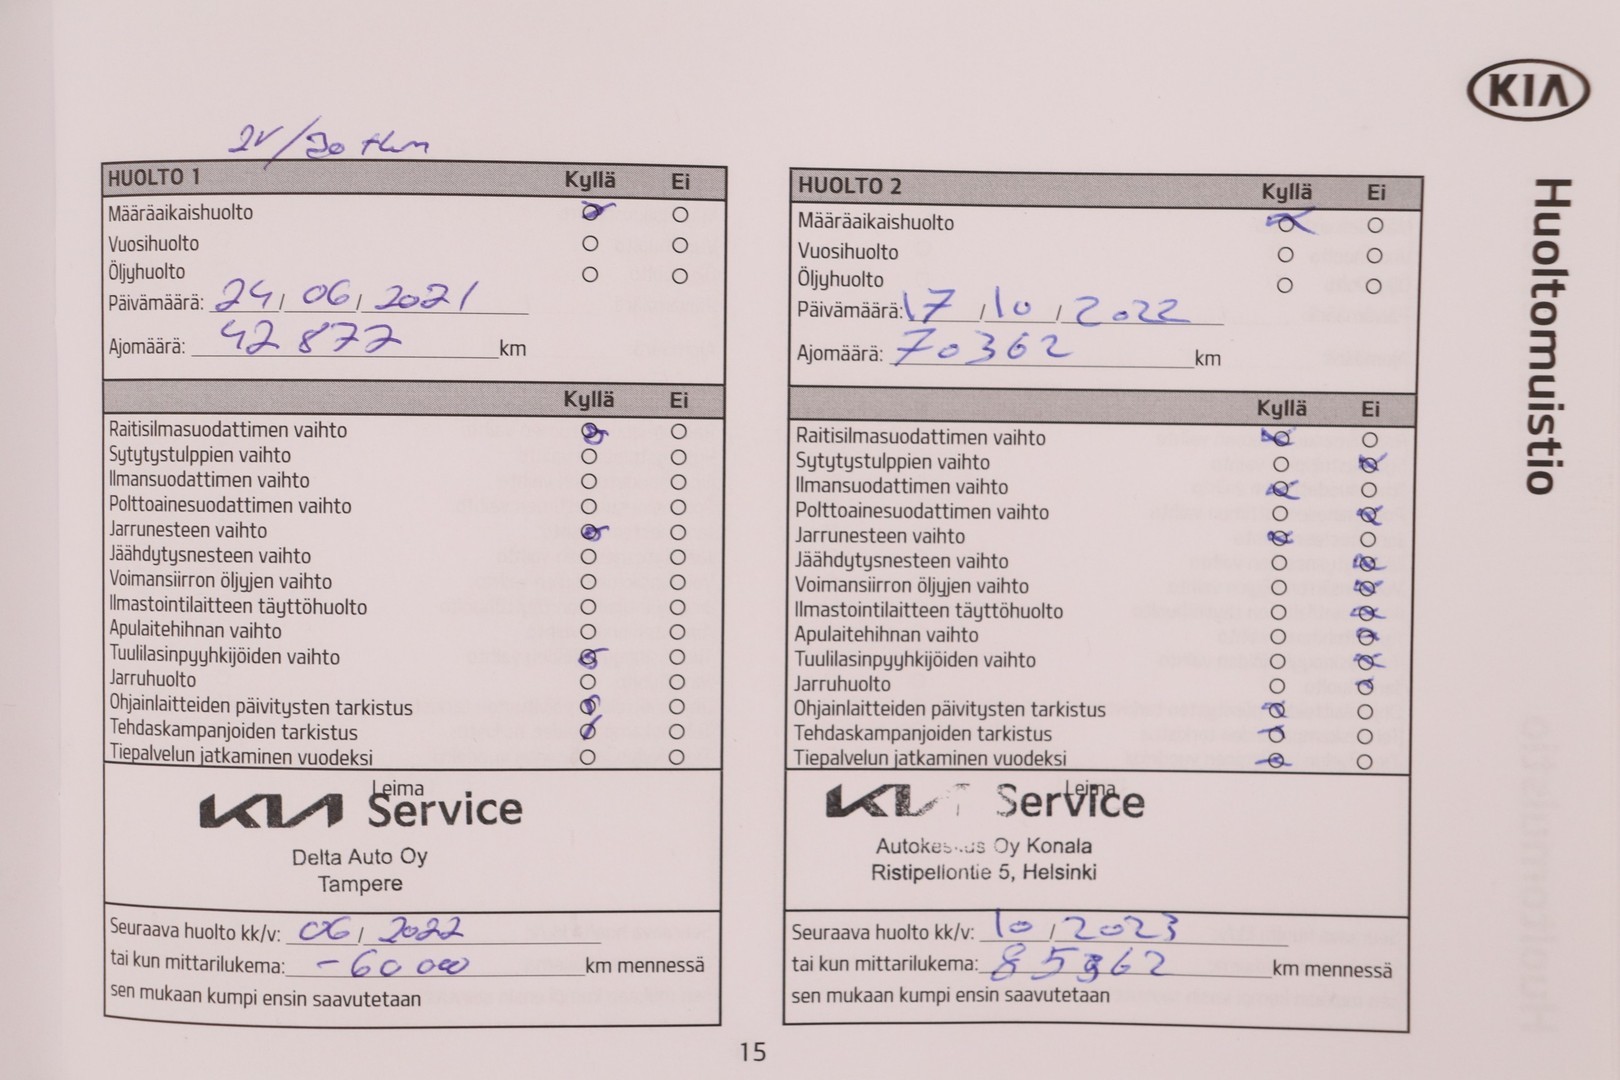 KIA
Huoltomuistio
2V/30 tkm
HUOLTO 1 Kyllä Ei
Määräaikaishuolto
Vuosihuolto
Öljyhuolto
Päivämäärä: 24 / 06 / 2021
Ajomäärä: 42 877 km
Kyllä Ei
Raitisilmasuodattimen vaihto
Sytytystulppien vaihto
Ilmansuodattimen vaihto
Polttoainesuodattimen vaihto
Jarrunesteen vaihto
Jäähdytysnesteen vaihto
Voimansiirron öljyjen vaihto
Ilmastointilaitteen täyttöhuolto
Apulaitehihnan vaihto
Tuulilasinpyyhkijöiden vaihto
Jarruhuolto
Ohjainlaitteiden päivitysten tarkistus
Tehdaskampanjoiden tarkistus
Tiepalvelun jatkaminen vuodeksi
Leima
KIA Service
Delta Auto Oy
Tampere
Seuraava huolto kk/v: 06 / 2022
tai kun mittarilukema: - 60 000 km mennessä
sen mukaan kumpi ensin saavutetaan
HUOLTO 2 Kyllä Ei
Määräaikaishuolto
Vuosihuolto
Öljyhuolto
Päivämäärä: 17 / 10 / 2022
Ajomäärä: 70362 km
Kyllä Ei
Raitisilmasuodattimen vaihto
Sytytystulppien vaihto
Ilmansuodattimen vaihto
Polttoainesuodattimen vaihto
Jarrunesteen vaihto
Jäähdytysnesteen vaihto
Voimansiirron öljyjen vaihto
Ilmastointilaitteen täyttöhuolto
Apulaitehihnan vaihto
Tuulilasinpyyhkijöiden vaihto
Jarruhuolto
Ohjainlaitteiden päivitysten tarkistus
Tehdaskampanjoiden tarkistus
Tiepalvelun jatkaminen vuodeksi
Leima
KIA Service
Autokeskus Oy Konala
Ristipellontie 5, Helsinki
Seuraava huolto kk/v: 10 / 2023
tai kun mittarilukema: 85362 km mennessä
sen mukaan kumpi ensin saavutetaan
15